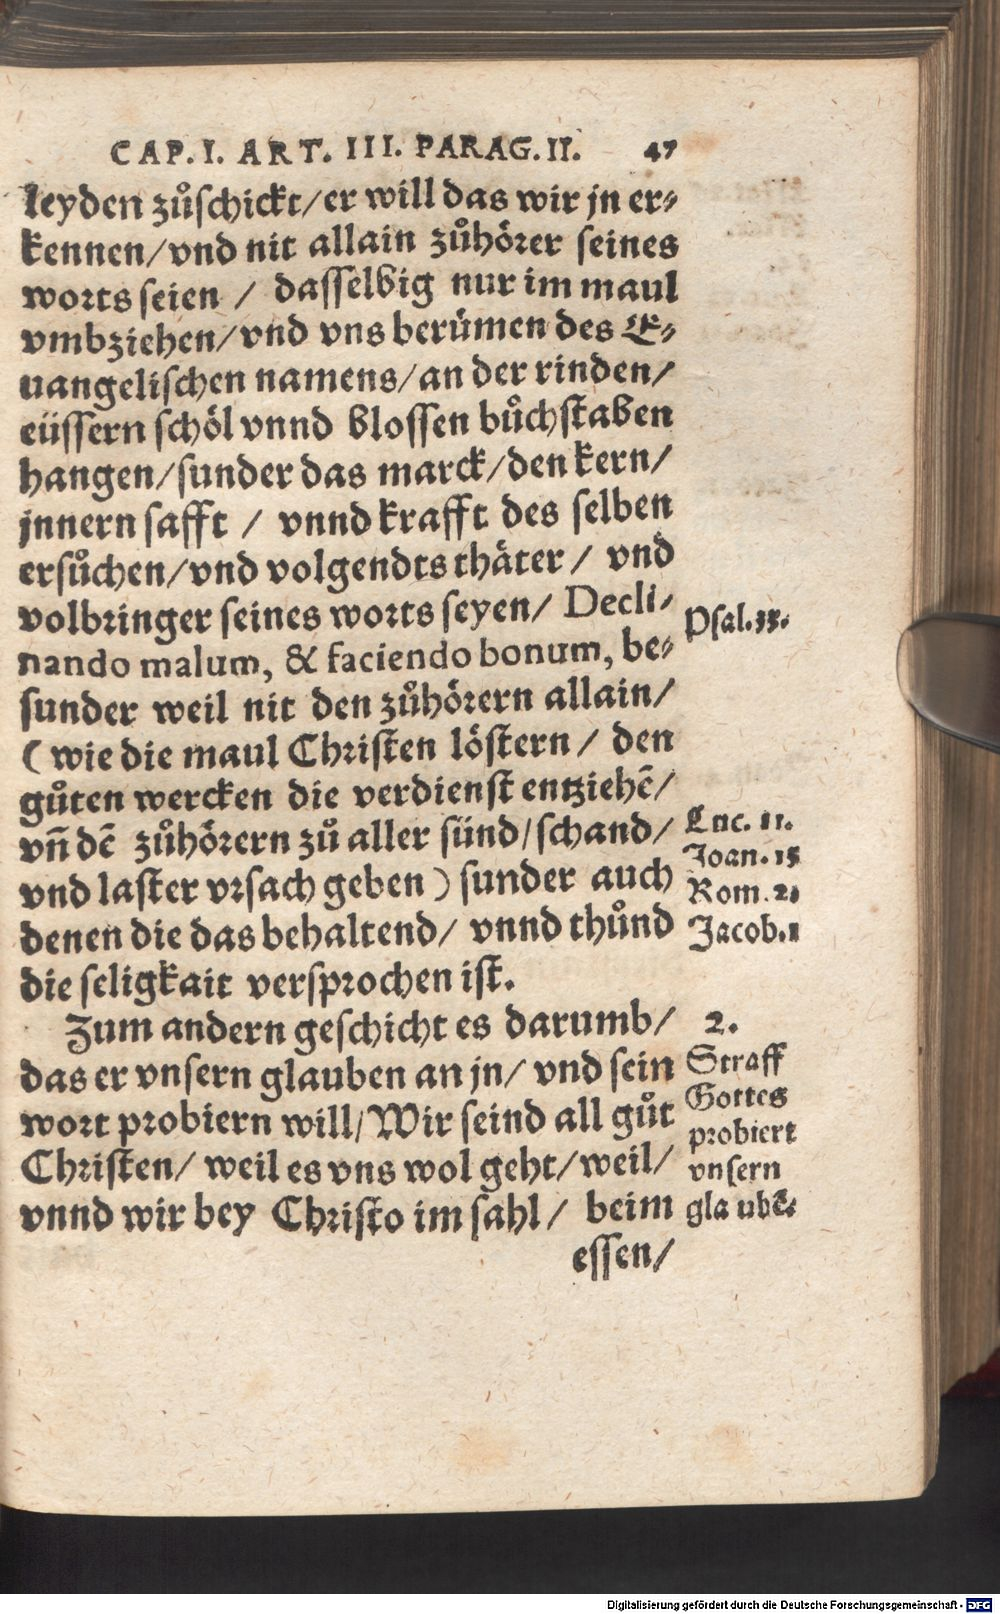 CAP. I. ART. III. PARAG. II. 47
leyden zůschickt/er will das wir jn er⸗
kennen/vnd nit allain zůhörer seines
worts seien / dasselbig nur im maul
vmbziehen/vnd vns berümen des E⸗
uangelischen namens/an der rinden/
eüssern schöl vnnd blossen bůchstaben
hangen/sunder das marck/den kern/
jnnern safft / vnnd krafft des selben
ersůchen/vnd volgendts thäter / vnd
volbringer seines worts seyen/ Decli⸗
nando malum, & faciendo bonum, be⸗
Psal.33.
sunder weil nit den zůhörern allain/
(wie die maul Christen löstern / den
gůten wercken die verdienst entziehē/
vn̄ dē zůhörern zů aller sünd/schand/
Luc. 11.
vnd laster vrsach geben) sunder auch
Joan. 15
Rom. 2.
denen die das behaltend/ vnnd thůnd
Jacob.1
die seligkait versprochen ist.
Zum andern geschicht es darumb/
2.
das er vnsern glauben an jn/ vnd sein
Straff
wort probiern will/Wir seind all gůt
Gottes
probiert
Christen/ weil es vns wol geht/weil/
vnsern
vnnd wir bey Christo im sahl/ beim
glaubē.
essen/
Digitalisierung gefördert durch die Deutsche Forschungsgemeinschaft - DFG